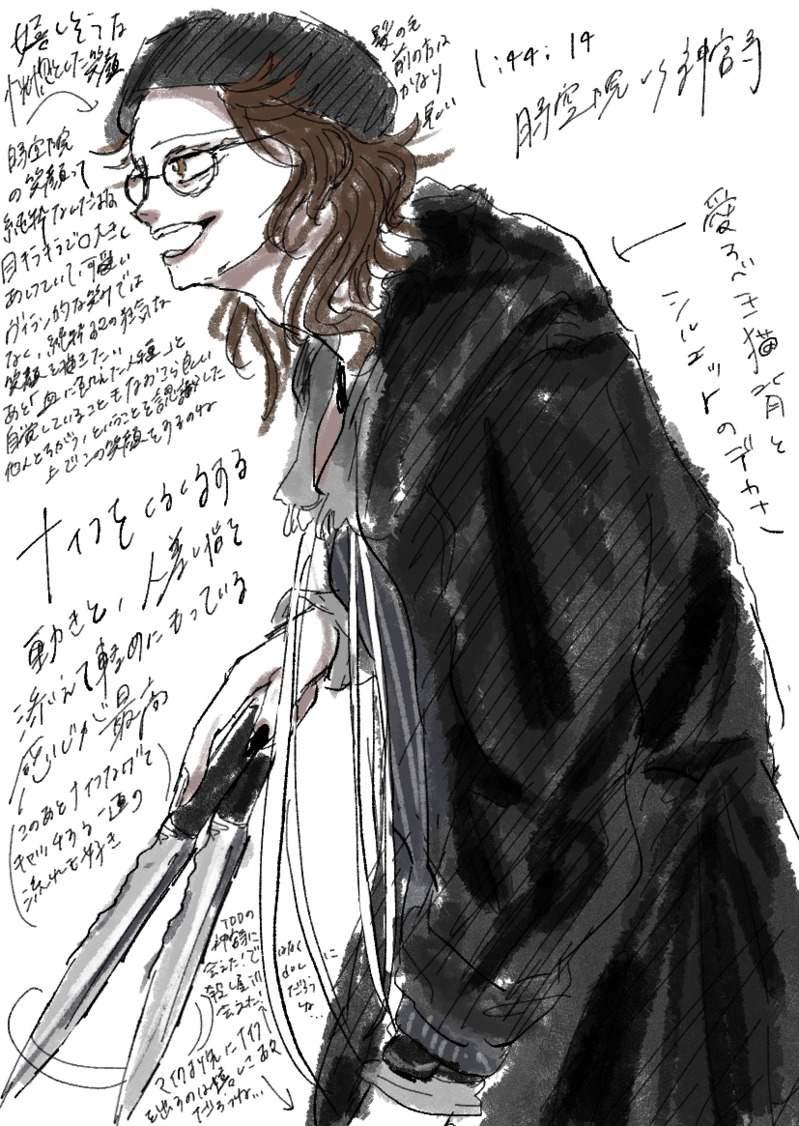 嬉しそうな
恍惚とした笑顔
髪の毛
前の方は
かなり
短い
1:44:14
時空院 いざ神宮寺
時空院
の笑顔って
純粋なんだよね
目キラキラで口大きく
あけていて、可愛い
ヴィラン的な笑みでは
なく、純粋ゆえの狂気な
笑顔を描きたい
あと「血に飢えた人種」と
自覚していることもなかなか良い
他人とちがう、ということを認識した
上でこの笑顔をするのね
愛すべき猫背と
シルエットのデカさ
ナイフをくるくるする
動きと、人差し指を
添えて軽めにもっている
感じが最高
このあとナイフなげて
キャッチする一連の
流れも好き
TDDの
神宮寺に
会えた!で
殺し屋に
会えた!
ではなく
だろう
ね...
マイクより先にナイフ
を出るのは
だろうね...